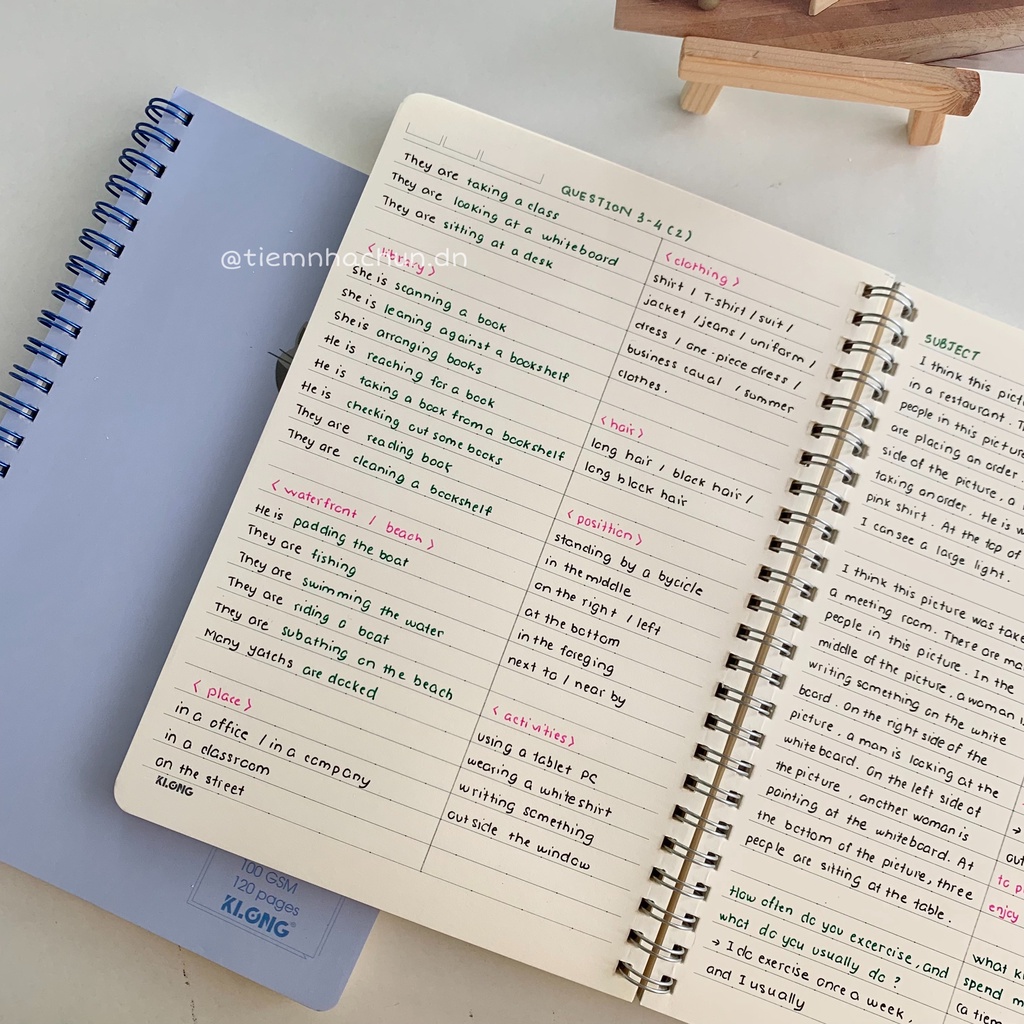 @tiemnhachun.dn
QUESTION 3-4 (2)
They are taking a class
They are looking at a whiteboard
They are sitting at a desk
< library >
She is scanning a book
She is leaning against a bookshelf
She is arranging books
He is reaching for a book
He is taking a book from a bookshelf
He is checking out some books
They are reading book
They are cleaning a bookshelf
< waterfront / beach >
He is padding the boat
They are fishing
They are swimming the water
They are riding a boat
They are subathing on the beach
Many yatchs are docked
< place >
in a office / in a company
in a classroom
on the street
KLONG
< clothing >
shirt / T-shirt / suit /
jacket / jeans / uniform /
dress / one-piece dress /
business caual / summer
clothes.
< hair >
long hair / black hair /
long black hair
< posittion >
standing by a bycicle
in the middle
on the right / left
at the bottom
in the foreging
next to / near by
< activities >
using a tablet PC
wearing a white shirt
writting something
out side the window
SUBJECT
I think this
in a restaurant.
people in this picture
are placing an order
side of the picture, a
taking an order. He is
pink shirt. At the top of
I can see a large light.
I think this picture was
a meeting room. There are
people in this picture. In the
middle of the picture, a woman is
writing something on the white
board. On the right side of the
picture, a man is looking at the
whiteboard. On the left side of
the picture, another woman is
pointing at the whiteboard. At
the bottom of the picture, three
people are sitting at the table.
How often do you excercise, and
what do you usually do?
→ I do exercise once a week,
and I usually
→
to
enjoy
what
spend
100 GSM
120 pages
KLONG